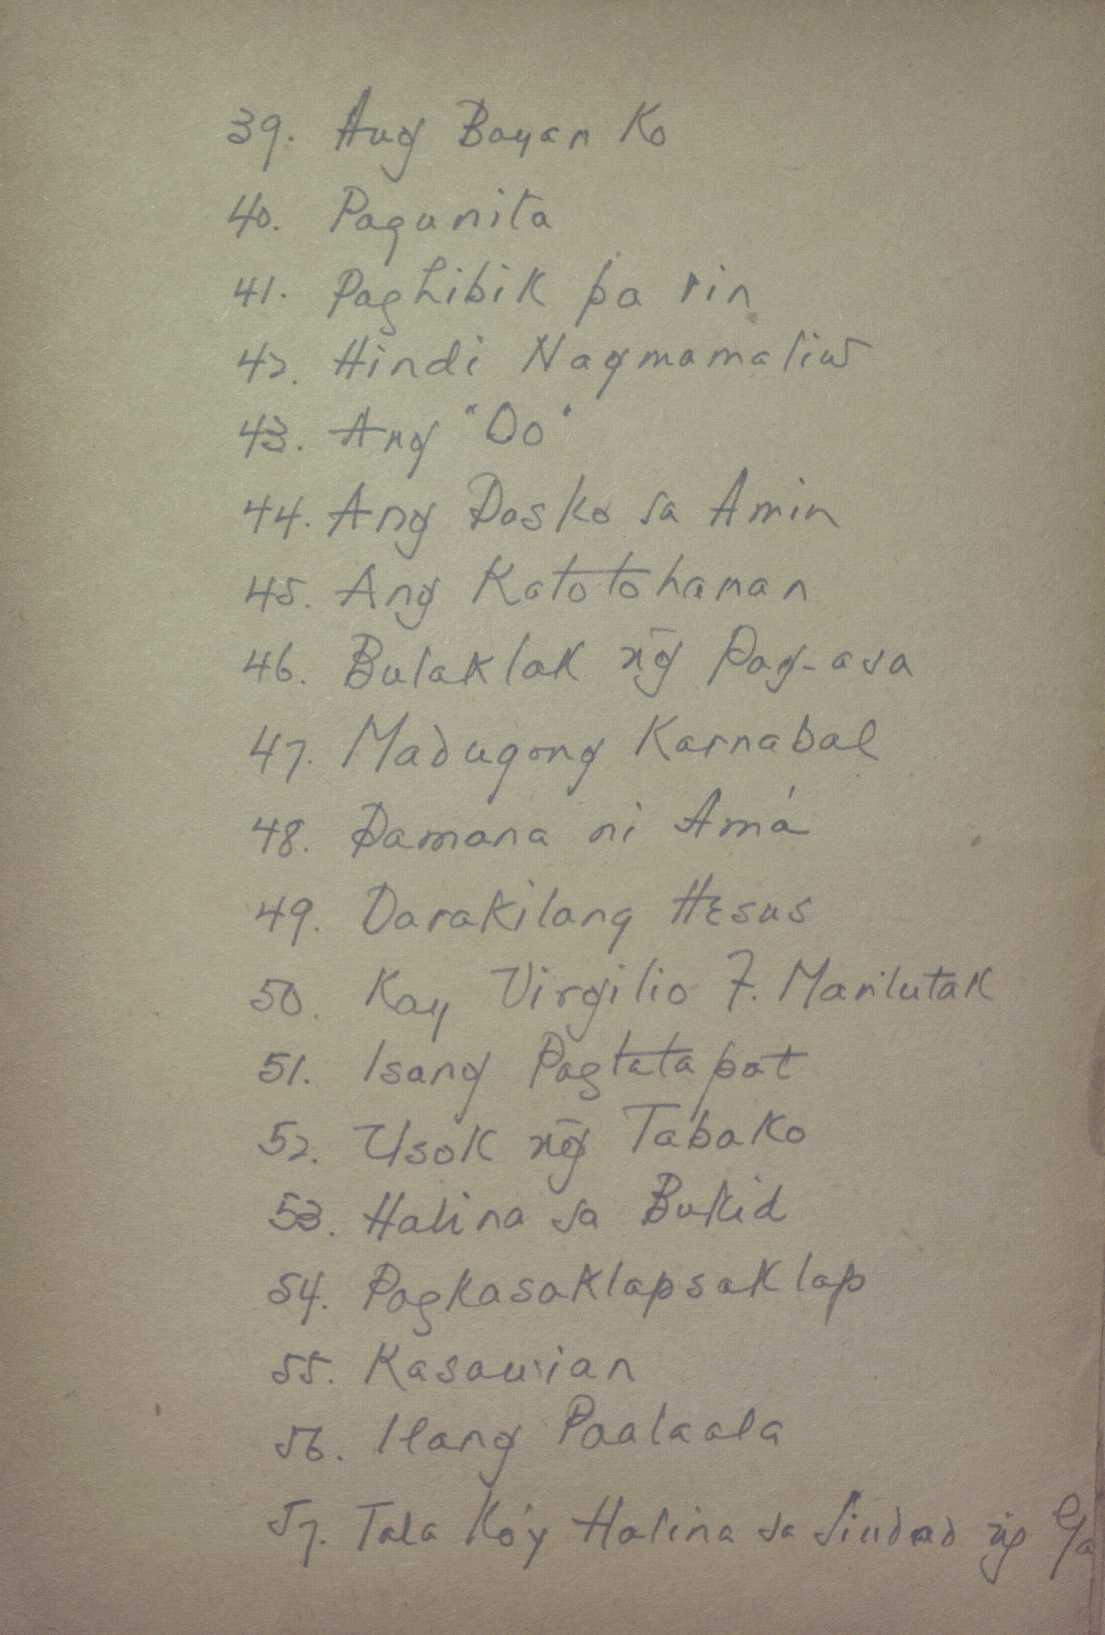 39. Ang Bayan Ko
40. Pagunita
41. Paghibik pa rin
42. Hindi Nagmamaliw
43. Ang "Oo"
44. Ang Pasko sa Amin
45. Ang Katotohanan
46. Bulaklak n̄g Pag-asa
47. Madugong Karnabal
48. Pamana ni Amá
49. Darakilang Hesus
50. Kay Virgilio F.
51. Isang Pagtatapat
52. Usok n̄g Tabako
53. Halina sa Bukid
54. Pagkasaklapsaklap
55. Kasawian
56. Ilang Paalaala
57. Tala Ko'y Halina sa Siudad n̄g